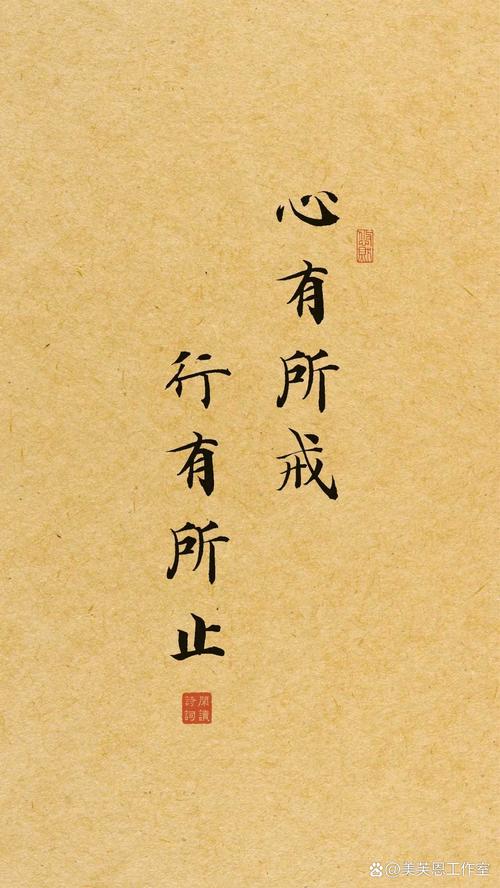 心有所戒
行有所止
閑讀
詩詞
@美芙恩工作室